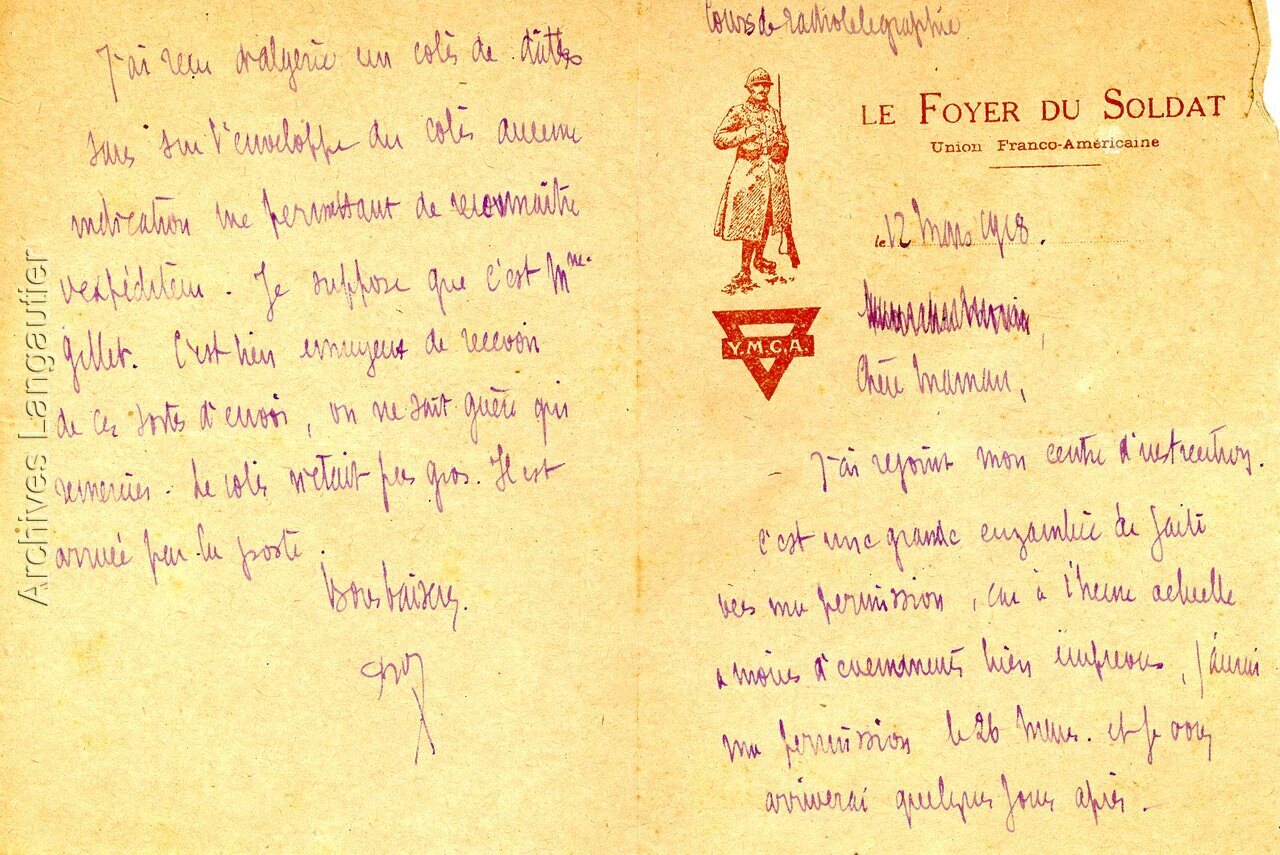 Cours de radiotelegraphie
LE FOYER DU SOLDAT
Union Franco-Américaine
Y.M.C.A.
le 12 Mars 1918.
Chère Maman,
J'ai rejoint mon centre d'instruction.
c'est une grande enjambée de faite
vers ma permission, car à l'heure actuelle
a moins d'evenements bien imprevus, j'aurai
ma permission le 26 Mars. et je vous
arriverai quelques jours après.
J'ai recu d'algerie un colis de dattes
sans sur l'enveloppe du colis aucune
indication me permettant de reconnaître
l'expéditeur. Je suppose que c'est Mme
Gillet. C'est bien ennuyeux de recevoir
de ces sortes d'envois, on ne sait guère qui
remercier. Le colis n'etait pas gros. Il est
arrivé par la poste.
Bons baisers.
Archives Langautier